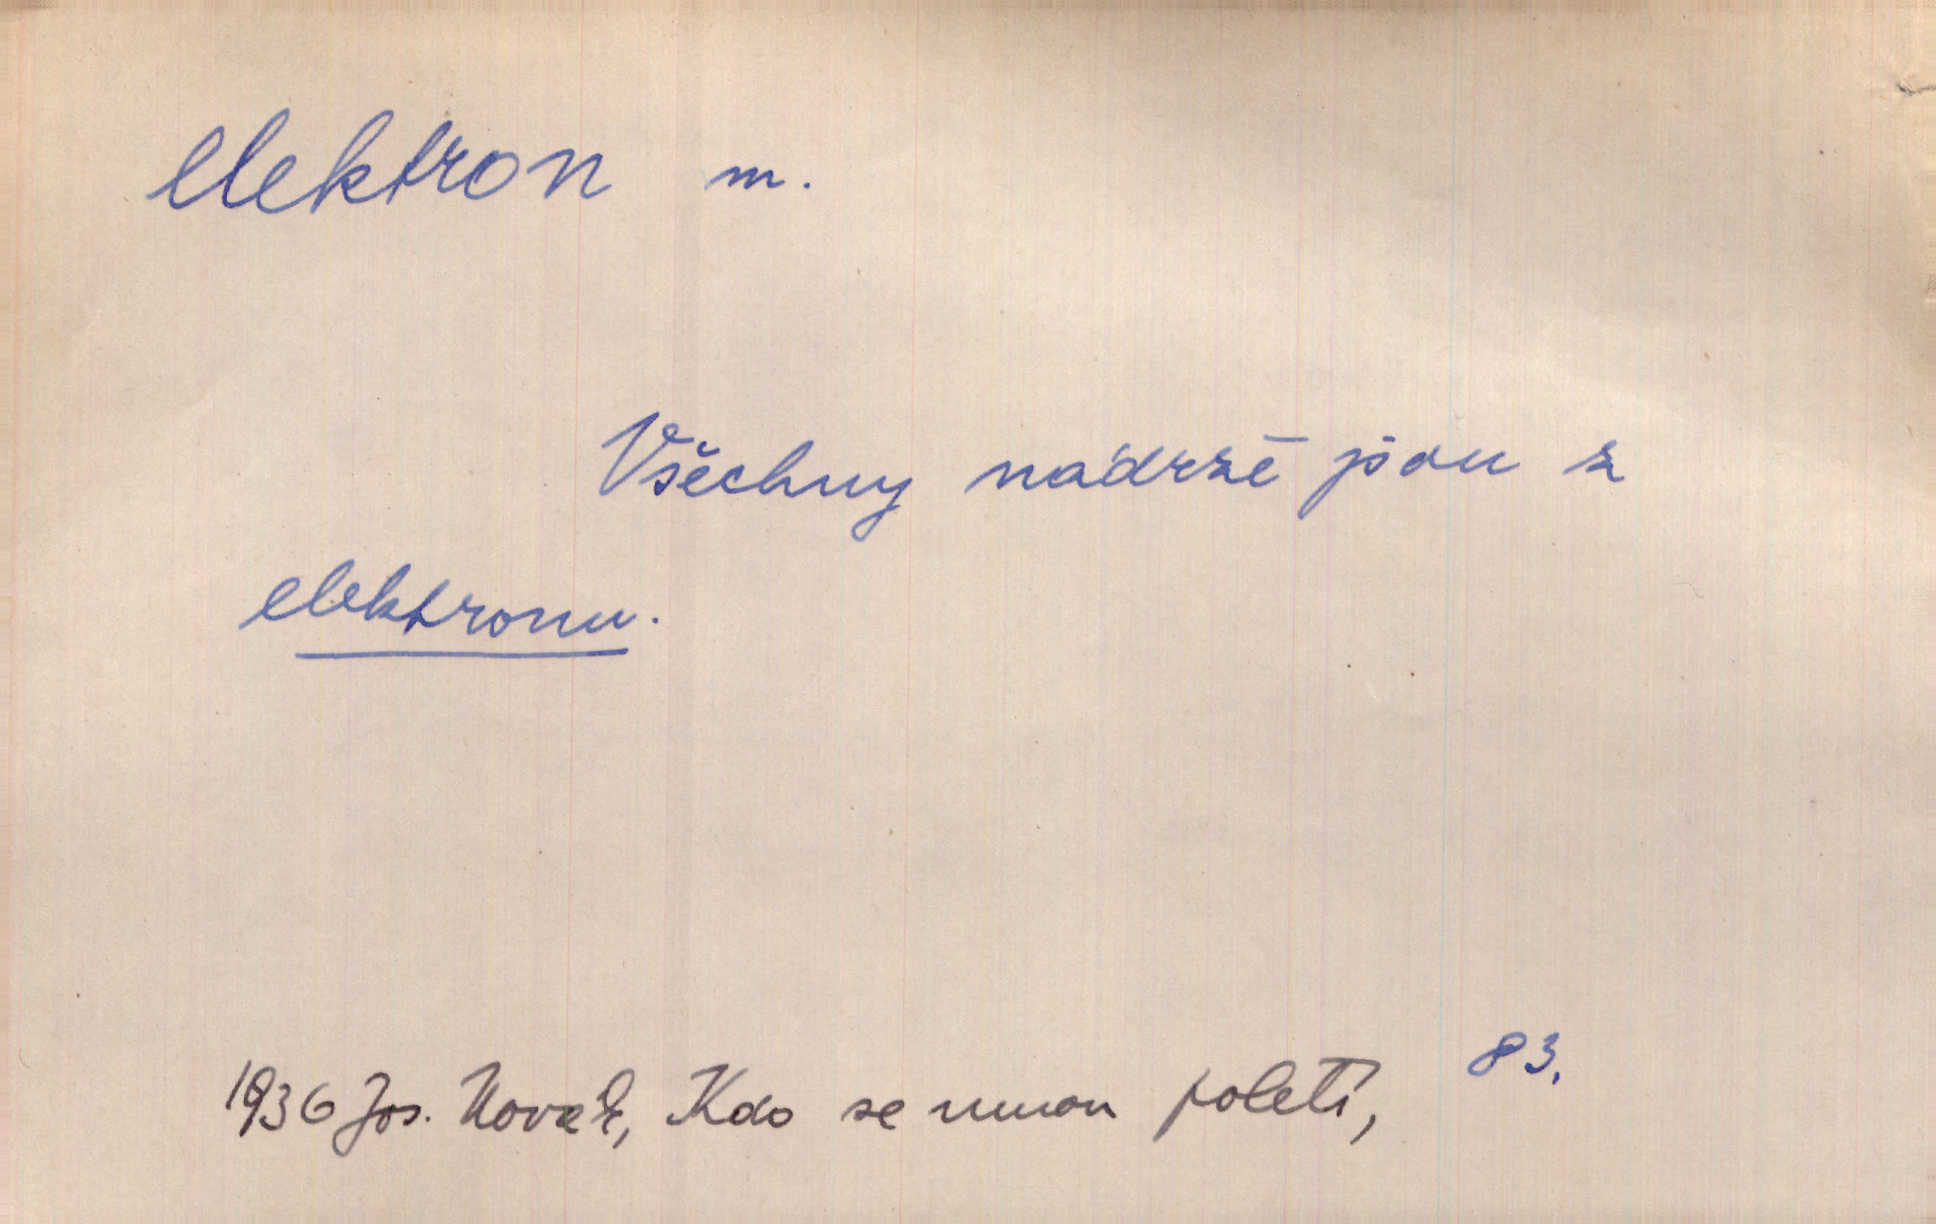 elektron m.
Všechny nádrže jsou z
elektronu.
1936 Jos. Novák, Kdo se mnou poletí, 83.